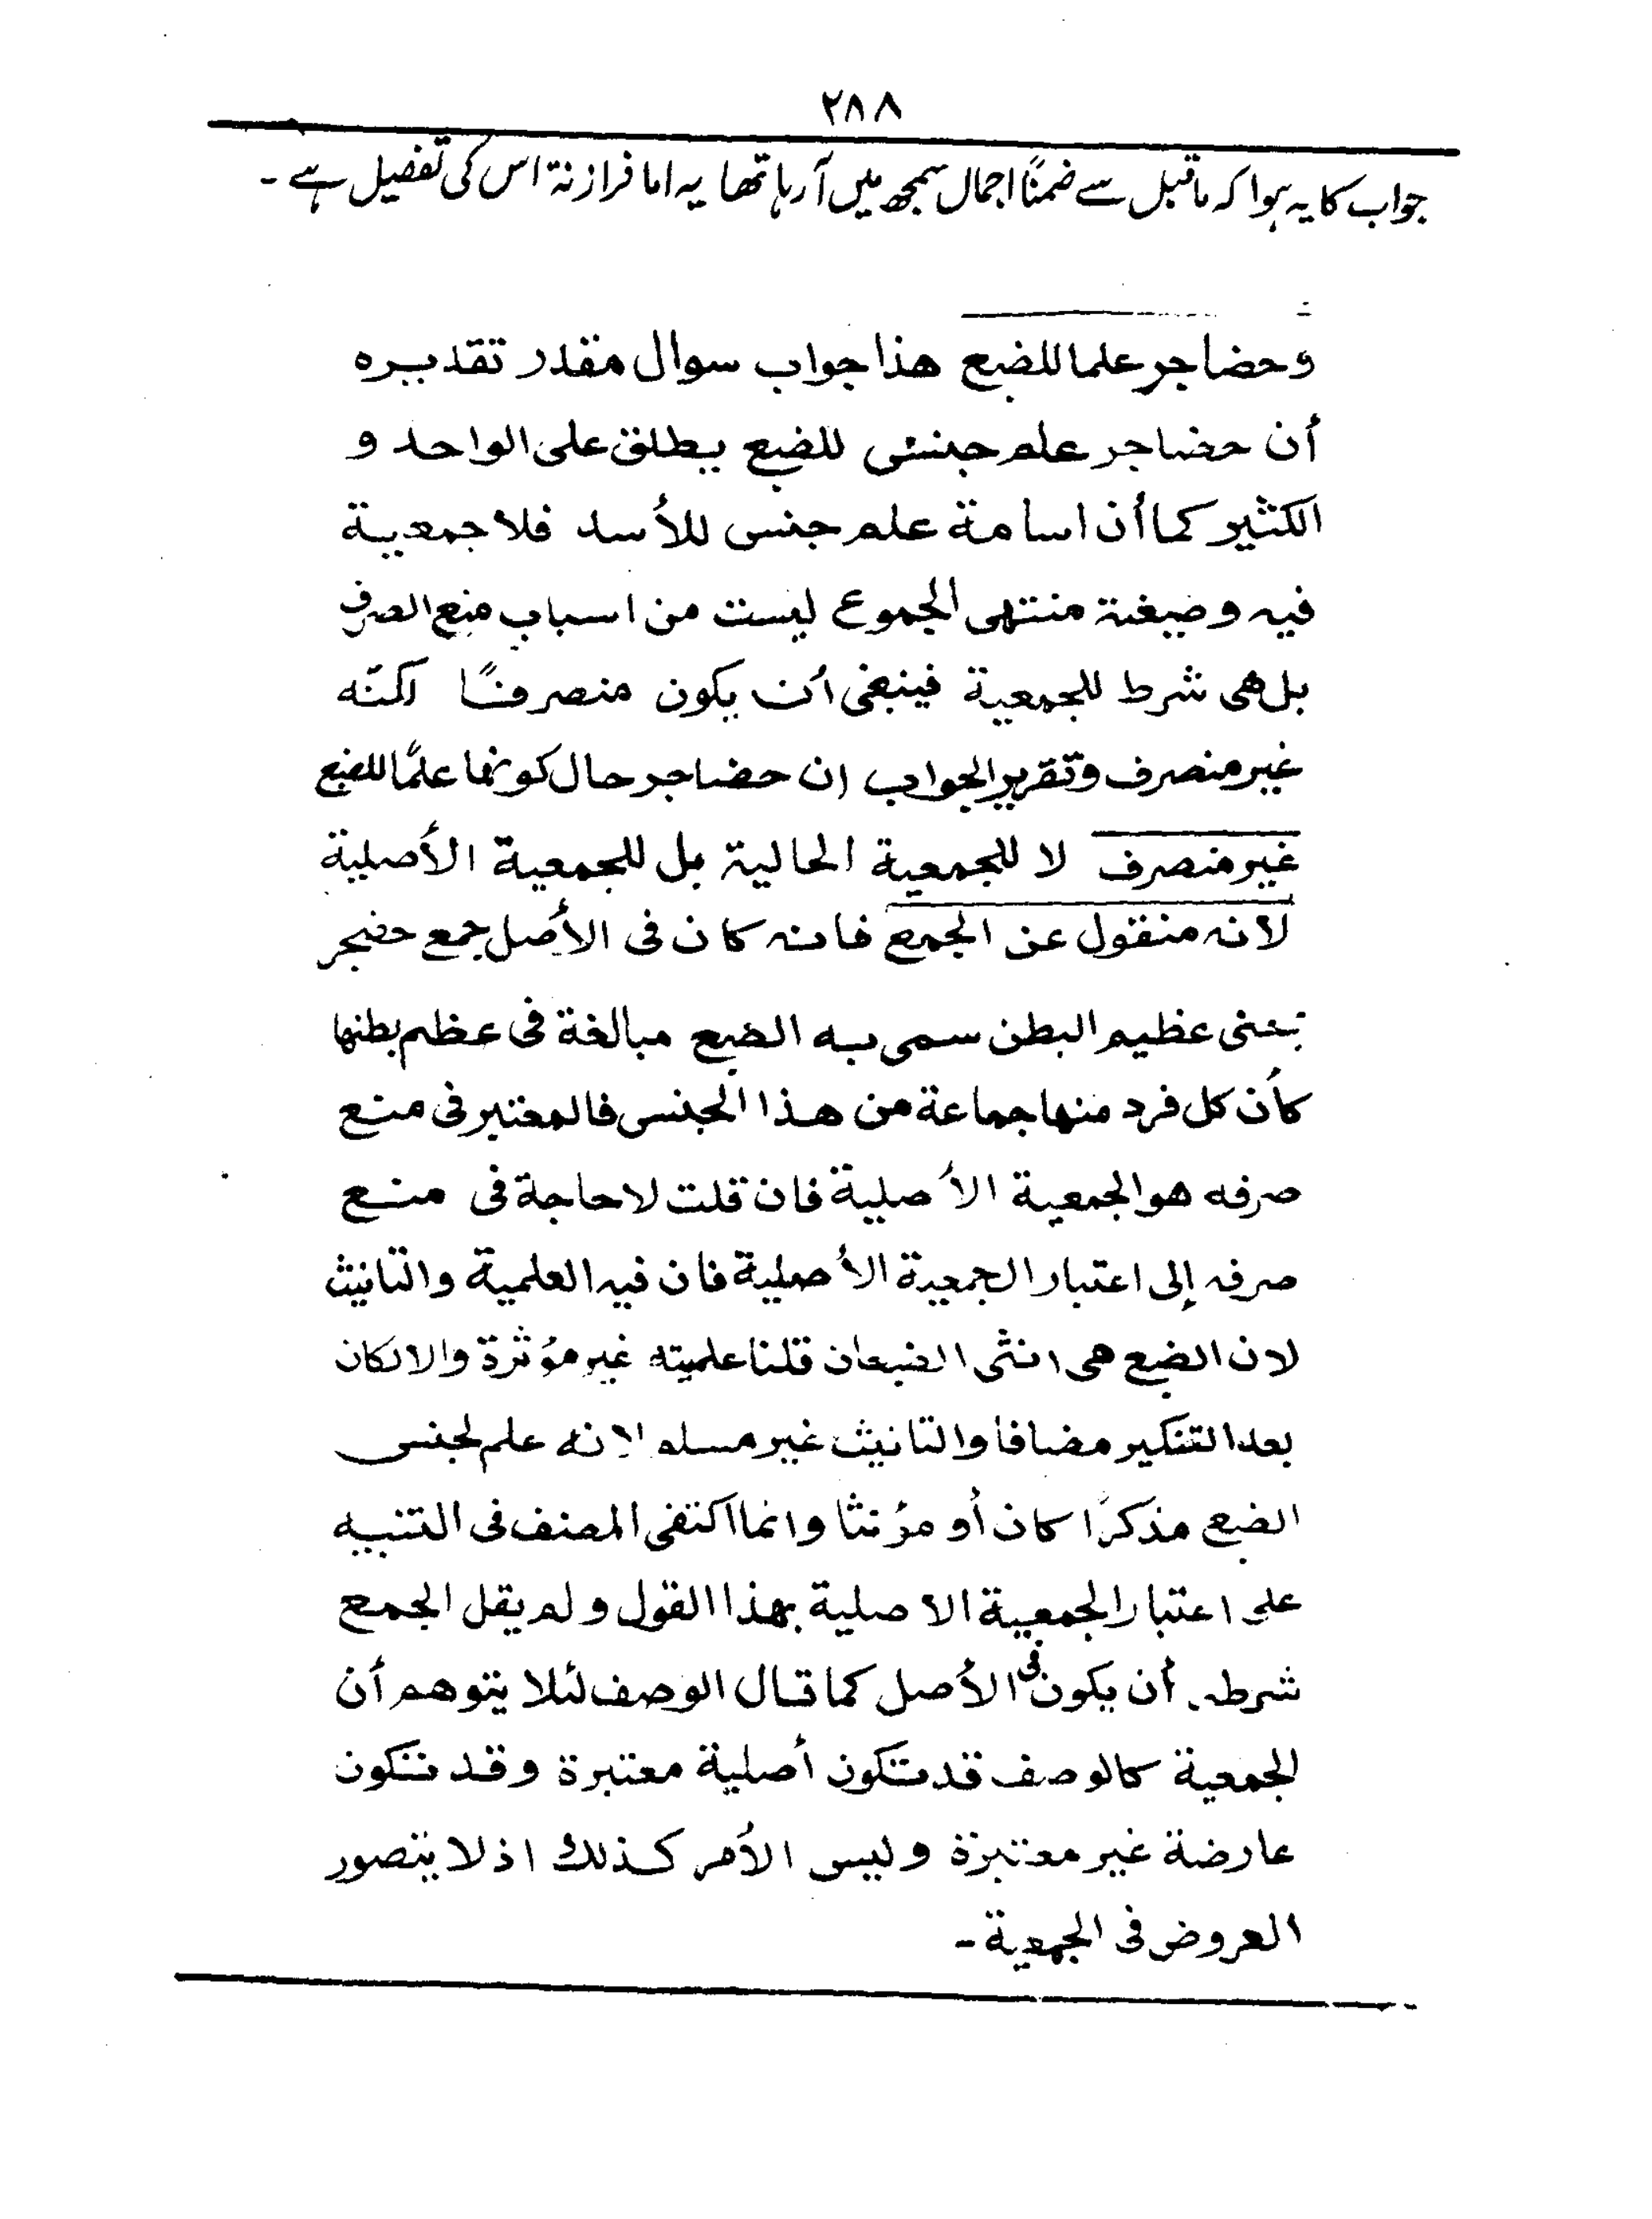 ٢٨٨
جواب کا یہ ہوا کہ ماقبل سے ضمنًا اجمال سمجھ میں آرہا تھا یہ اما فرازنۃ اس کی تفصیل ہے ۔
وحضاجر علما للضبع هذا جواب سوال مقدر تقديره
أن حضاجر علم جنسى للضبع يطلق على الواحد و
الكثير كما أن اسامة علم جنس للأسد فلا جمعية
فيه وصيغة منتهى الجموع ليست من اسباب منع الصرف
بل هى شرط للجمعية فينبغى أن يكون منصرفًا لكنّه
غير منصرف وتقرير الجواب ان حضاجر حال كونها علمًا للضبع
غير منصرف لا للجمعية الحالية بل للجمعية الأصلية
لانه منقول عن الجمع فانه كان فى الأصل جمع حضجر
بمعنى عظيم البطن سمى به الضبع مبالغة فى عظم بطنها
كأن كل فرد منها جماعة من هذا الجنس فالمعتبر فى منع
صرفه هو الجمعية الأصلية فان قلت لا حاجة فى منع
صرفه إلى اعتبار الجمعية الأصلية فان فيه العلمية والتانيث
لان الضبع هى انثى الضبعان قلنا علميته غير مؤثرة والا لكان
بعد التنكير مضافا والتانيث غير مسلم لانه علم لجنس
الضبع مذكرًا كان أو مؤنثا وانما اكتفى المصنف فى التنبيه
على اعتبار الجمعية الاصلية بهذا القول ولم يقل الجمع
شرطه أن يكون فى الأصل كما قال الوصف لئلا يتوهم أن
الجمعية كالوصف قد تكون أصلية معتبرة وقد تكون
عارضة غير معتبرة وليس الأمر كذلك اذ لا يتصور
العروض فى الجمعية ـ